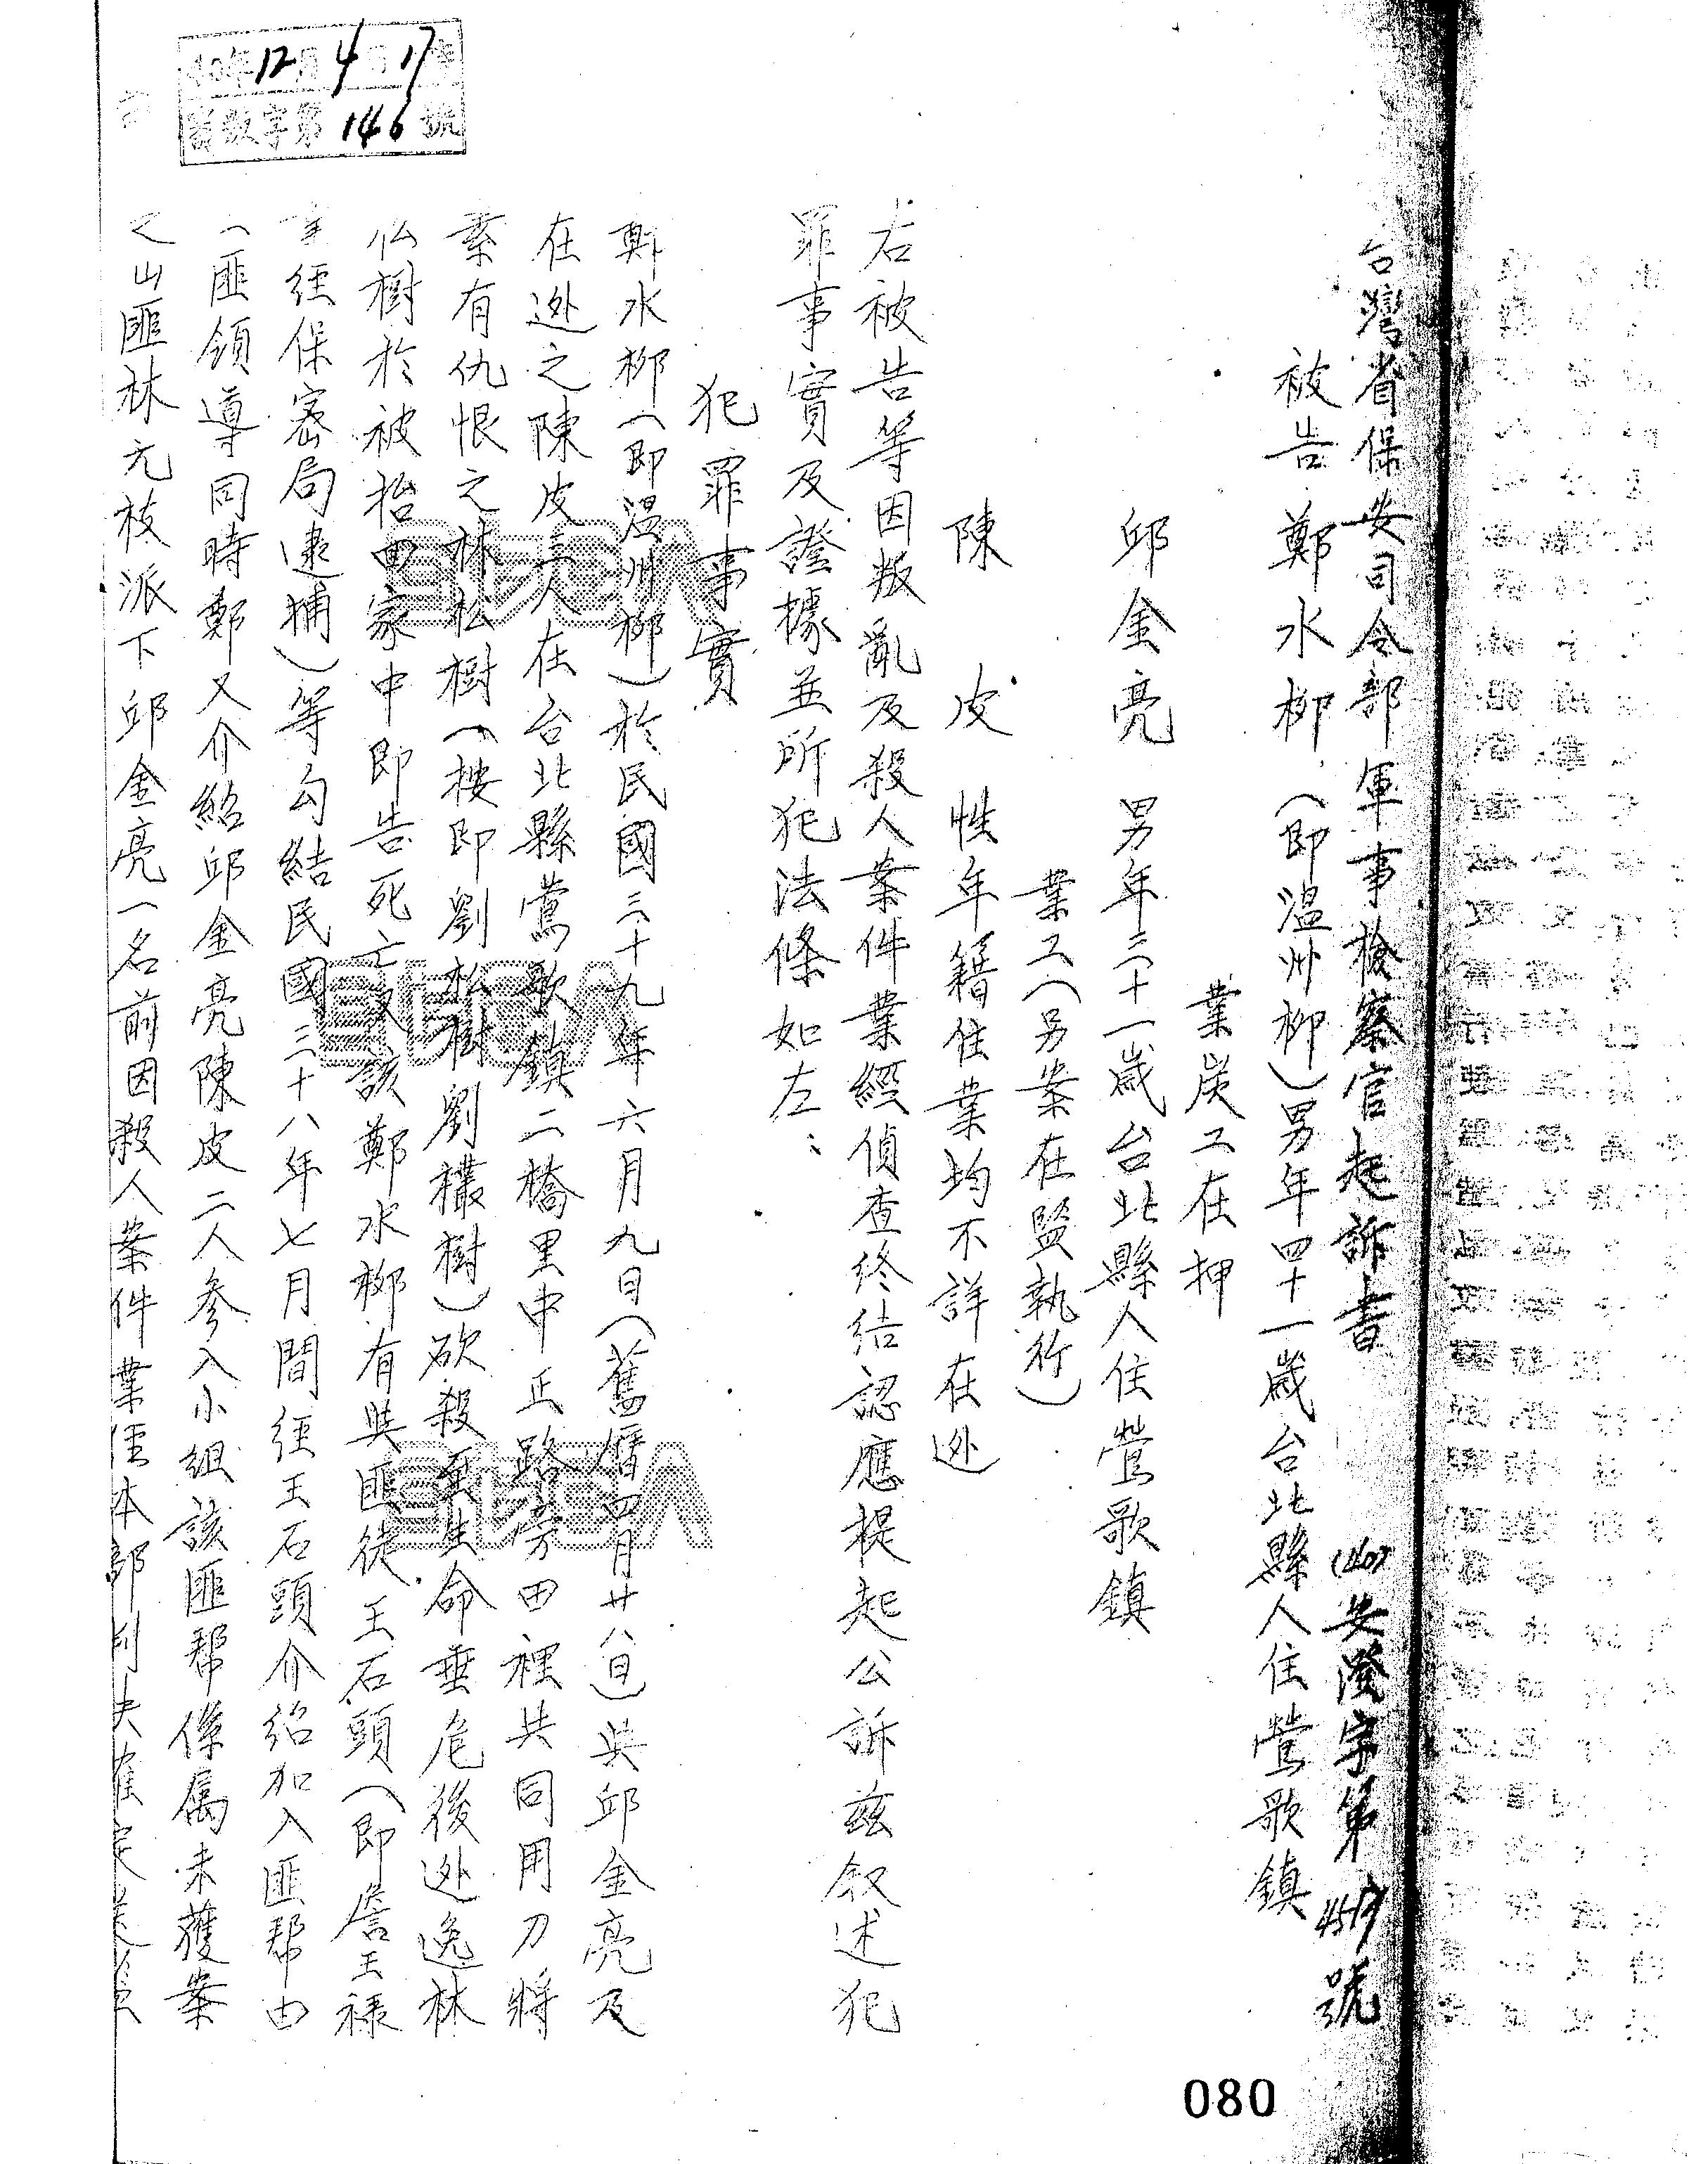 台灣省保安司令部軍事檢察官起訴書 (40)安澄字第4513號
被告 鄭水柳(即溫州柳)男年四十一歲台北縣人住鶯歌鎮
業炭工在押
邱金亮 男年三十一歲台北縣人住鶯歌鎮
業工(另案在監執行)
陳皮 性年籍住業均不詳在逃
右被告等因叛亂及殺人案件業經偵查終結認應提起公訴茲叙述犯
罪事實及證據並所犯法條如左:
犯罪事實
鄭水柳(即溫州柳)於民國三十九年六月九日(舊曆四月廿八日)與邱金亮及
在逃之陳皮三人在台北縣鶯歌鎮二橋里中正路旁田裡共同用刀將
素有仇恨之林松樹(按即劉松樹劉欉樹)砍殺至生命垂危後逃逸林
松樹於被抬回家中即告死亡又該鄭水柳有與匪徒王石頭(即詹王祿
經保密局逮捕)等勾結民國三十八年七月間經王石頭介紹加入匪帮由
(匪領導同時鄭又介紹邱金亮陳皮二人參入小組該匪帮係屬未獲案
之山匪林元枝派下邱金亮一名前因殺人案件業經本部判決確定
40年12月4日17
字第146號
080